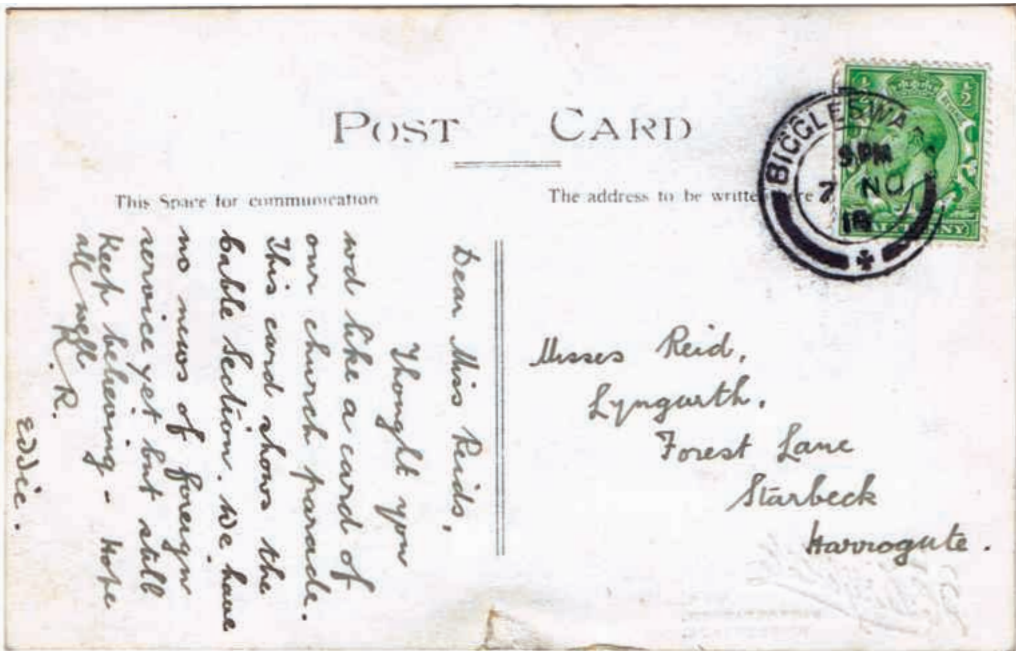 POST CARD
This Space for communication
The address to be written here
BIGGLESWA
9 PM
7 NO
½
½
Dear Miss Reids,
Thought you
wod like a card of
our church parade.
This card shows the
Cable Section. We have
no news of foreign
service yet but still
Keep believing - Hope
all well
R.
Eddie.
Misses Reid,
Lyngarth,
Forest Lane
Starbeck
Harrogate.